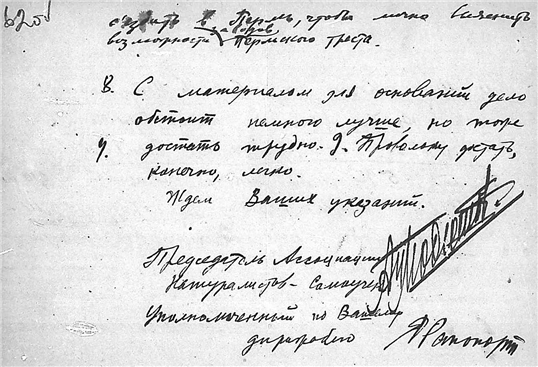 62 об
съездить в Пермь, чтобы лично выяснить
возможности заводов Пермского треста.
8. С материалом для оснований дело
обстоит немного лучше, но тоже
достать трудно.
9. Проволоку достать,
конечно, легко.
Ждем Ваших указаний.
Председатель Ассоциации
Натуралистов - Самоучек
Уполномоченный по Вашему
Рапопорт